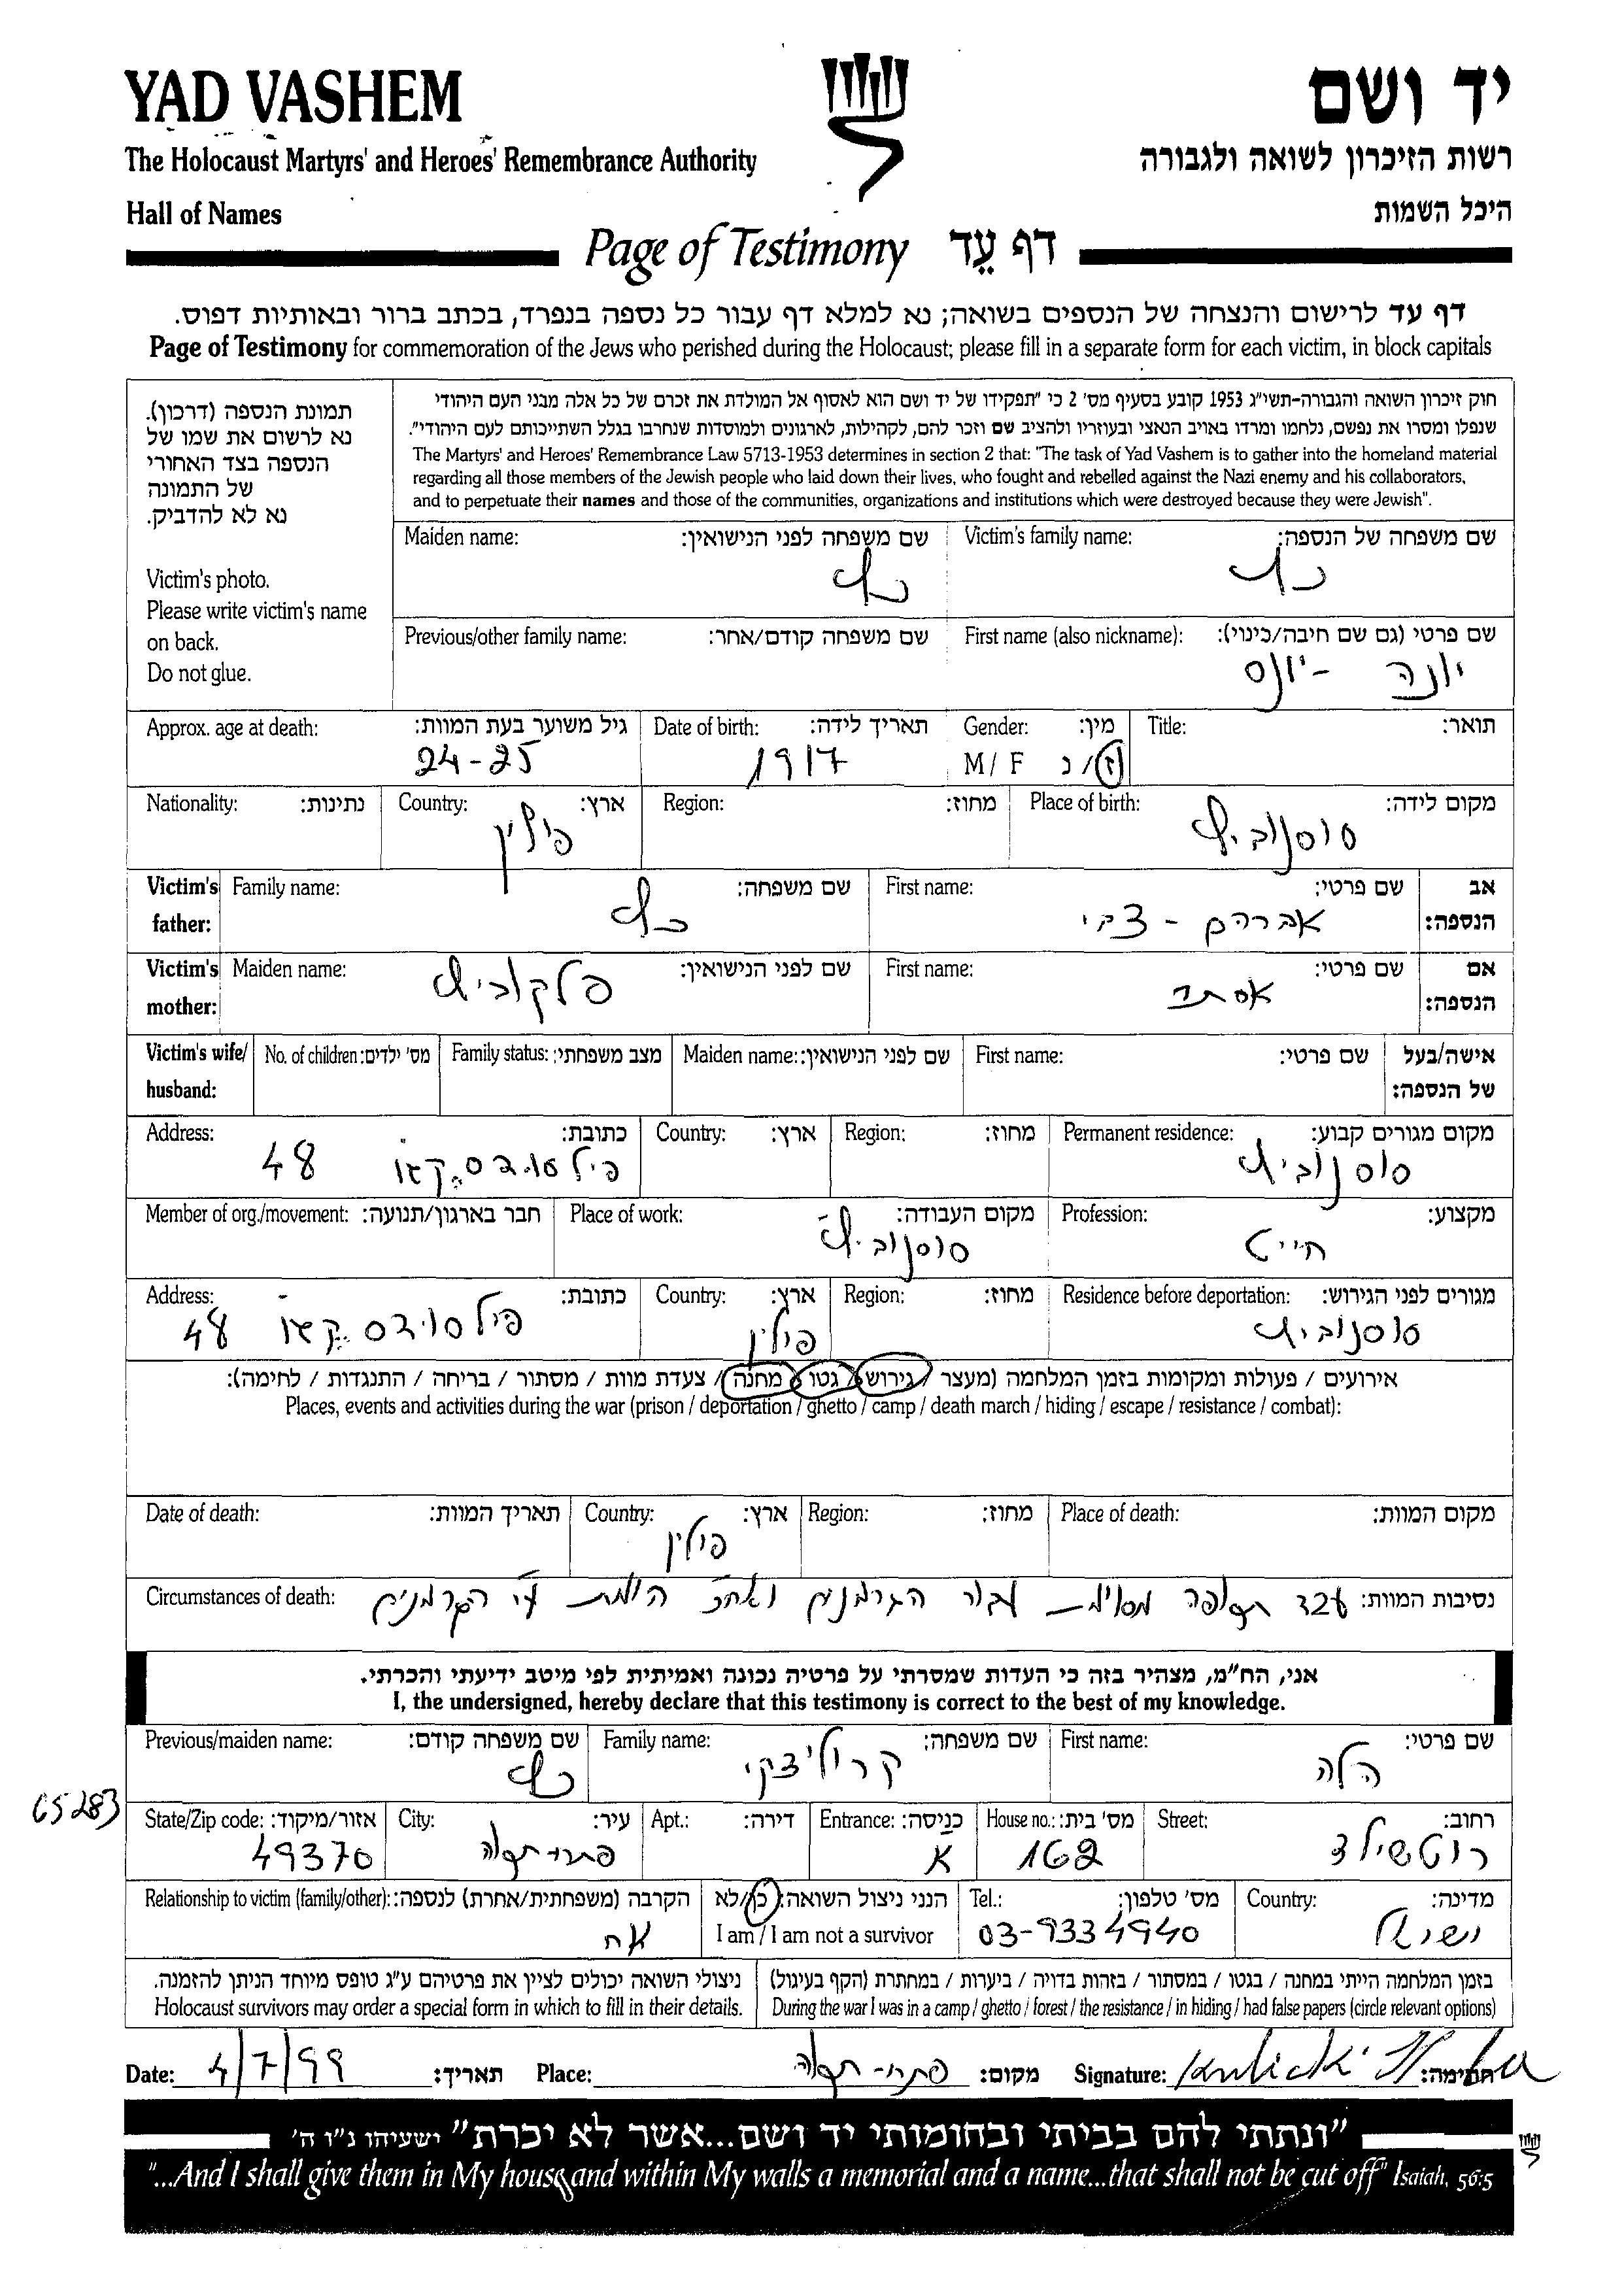 YAD VASHEM
יד ושם
The Holocaust Martyrs' and Heroes' Remembrance Authority
רשות הזיכרון לשואה ולגבורה
Hall of Names
היכל השמות
Page of Testimony דף עֵד
דף עד לרישום והנצחה של הנספים בשואה; נא למלא דף עבור כל נספה בנפרד, בכתב ברור ובאותיות דפוס.
Page of Testimony for commemoration of the Jews who perished during the Holocaust; please fill in a separate form for each victim, in block capitals
תמונת הנספה (דרכון).
נא לרשום את שמו של
הנספה בצד האחורי
של התמונה
נא לא להדביק.
Victim's photo.
Please write victim's name
on back.
Do not glue.
חוק זיכרון השואה והגבורה-תשי"ג 1953 קובע בסעיף מס' 2 כי "תפקידו של יד ושם הוא לאסוף אל המולדת את זכרם של כל אלה מבני העם היהודי
שנפלו ומסרו את נפשם, נלחמו ומרדו באויב הנאצי ובעוזריו ולהציב שם וזכר להם, לקהילות, לארגונים ולמוסדות שנחרבו בגלל השתייכותם לעם היהודי".
The Martyrs' and Heroes' Remembrance Law 5713-1953 determines in section 2 that: "The task of Yad Vashem is to gather into the homeland material
regarding all those members of the Jewish people who laid down their lives, who fought and rebelled against the Nazi enemy and his collaborators,
and to perpetuate their names and those of the communities, organizations and institutions which were destroyed because they were Jewish".
Victim's family name: שם משפחה של הנספה:
כץ
Maiden name: שם משפחה לפני הנישואין:
כץ
First name (also nickname): שם פרטי (גם שם חיבה/כינוי):
יונה - יונס
Previous/other family name: שם משפחה קודם/אחר:
Title: תואר:
Gender: מין:
M / F ז/נ
Date of birth: תאריך לידה:
1917
Approx. age at death: גיל משוער בעת המוות:
24-25
Place of birth: מקום לידה:
סוסנוביץ
Region: מחוז:
Country: ארץ:
פולין
Nationality: נתינות:
Victim's father: אב הנספה:
First name: שם פרטי:
אברהם - צבי
Family name: שם משפחה:
כץ
Victim's mother: אם הנספה:
First name: שם פרטי:
אסתר
Maiden name: שם לפני הנישואין:
פלקוביץ
Victim's wife/husband: אישה/בעל של הנספה:
First name: שם פרטי:
Maiden name: שם לפני הנישואין:
Family status: מצב משפחתי:
No. of children: מס' ילדים:
Permanent residence: מקום מגורים קבוע:
סוסנוביץ
Region: מחוז:
Country: ארץ:
Address: כתובת:
48
Profession: מקצוע:
חייט
Place of work: מקום העבודה:
סוסנוביץ
Member of org./movement: חבר בארגון/תנועה:
Residence before deportation: מגורים לפני הגירוש:
סוסנוביץ
Region: מחוז:
Country: ארץ:
פולין
Address: כתובת:
48
אירועים / פעולות ומקומות בזמן המלחמה (מעצר / גירוש / גטו / מחנה / צעדת מוות / מסתור / בריחה / התנגדות / לחימה):
Places, events and activities during the war (prison / deportation / ghetto / camp / death march / hiding / escape / resistance / combat):
Place of death: מקום המוות:
Region: מחוז:
Country: ארץ:
פולין
Date of death: תאריך המוות:
Circumstances of death: נסיבות המוות:
עבד תקופה מסוימת עבור הגרמנים ואח"כ הומת ע"י הגרמנים
אני, הח"מ, מצהיר בזה כי העדות שמסרתי על פרטיה נכונה ואמיתית לפי מיטב ידיעתי והכרתי.
I, the undersigned, hereby declare that this testimony is correct to the best of my knowledge.
First name: שם פרטי:
הלה
Family name: שם משפחה:
קרוליצקי
Previous/maiden name: שם משפחה קודם:
כץ
65283
Street: רחוב:
רוטשילד
House no.: מס' בית:
162
Entrance: כניסה:
א
Apt.: דירה:
City: עיר:
פתח-תקוה
State/Zip code: אזור/מיקוד:
49370
Country: מדינה:
ישראל
Tel.: מס' טלפון:
03-9334940
הנני ניצול השואה: כן/לא
I am / I am not a survivor
Relationship to victim (family/other): הקרבה (משפחתית/אחרת) לנספה:
אח
בזמן המלחמה הייתי במחנה / בגטו / במסתור / בזהות בדויה / ביערות / במחתרת (הקף בעיגול)
During the war I was in a camp / ghetto / forest / the resistance / in hiding / had false papers (circle relevant options)
ניצולי השואה יכולים לציין את פרטיהם ע"ג טופס מיוחד הניתן להזמנה.
Holocaust survivors may order a special form in which to fill in their details.
Date: 4/7/99 תאריך: Place: פתח-תקוה מקום: Signature: חתימה:
"ונתתי להם בביתי ובחומותי יד ושם...אשר לא יכרת" ישעיהו נ"ו ה'
"...And I shall give them in My house and within My walls a memorial and a name...that shall not be cut off" Isaiah, 56:5